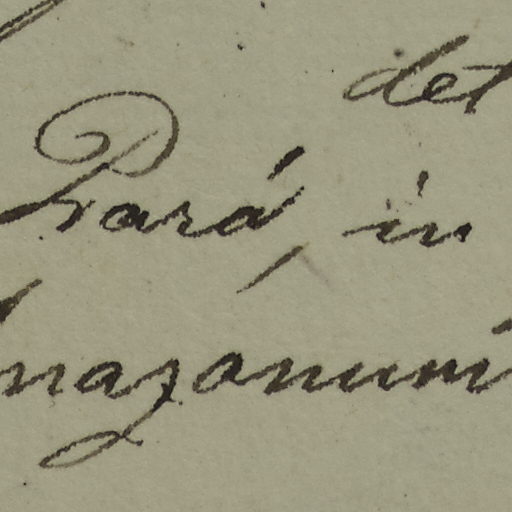 det
Pará, in
mazonum